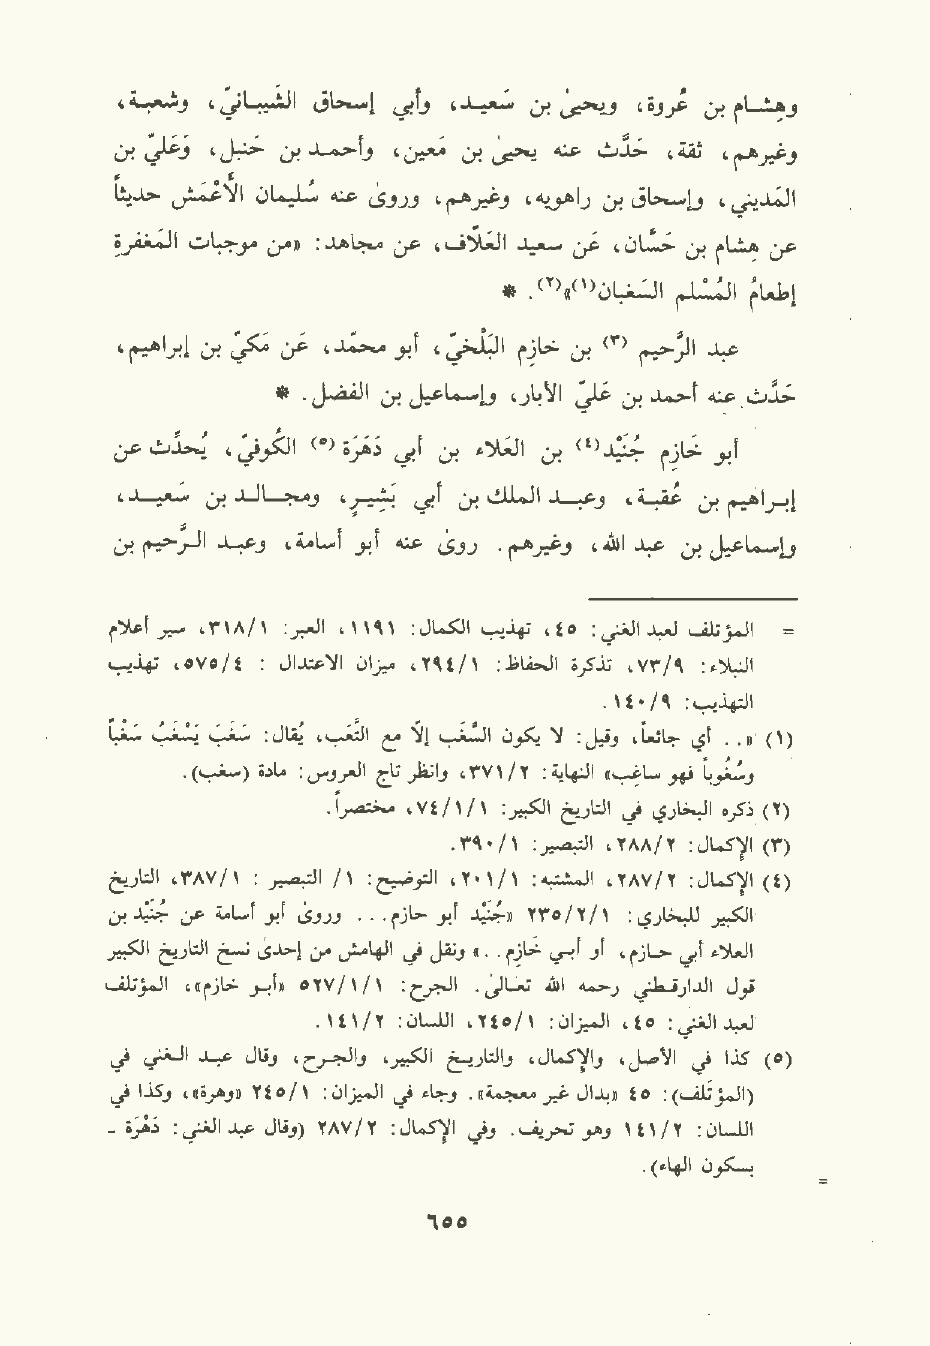 وهِشـام بن عُروة، ويحيىٰ بن سَعيـد، وأبي إسحاق الشَّيبَـانيّ، وشعبـة،
وغيرهم، ثقة، حَدَّث عنه يحيىٰ بن مَعين، وأحمـد بن حَنبل، وَعَليّ بن
المَديني، وإسحاق بن راهويه، وغيرهم، وروىٰ عنه سُليمان الأَعْمَش حديثاً
عن هِشام بن حَسَّان، عن سعيد العَلَّاف، عن مجاهد: «من موجبات المَغفرةِ
إطعامُ المُسْلمِ السَغبان(١)»(٢). *
عبد الرَّحيم (٣) بن خازِم البَلْخيّ، أبو محمَّد، عَن مَكيّ بن إبراهيم،
حَدَّث عنه أحمد بن عَليّ الأبار، وإسماعيل بن الفضل. *
أبو خَازِم جُنَيْد(٤) بن العَلاء بن أبي دَهْرَة (٥) الكُوفيّ، يُحدِّث عن
إبـراهيم بن عُقبـة، وعبـد الملك بن أبي بَشِيـر، ومجـالـد بن سَعيـد،
وإسماعيل بن عبد الله، وغيرهم. روىٰ عنه أبو أسامة، وعبـد الـرَّحيم بن
= المؤتلف لعبد الغني: ٤٥، تهذيب الكمال: ١١٩١، العبر: ٣١٨/١، سير أعلام
النبلاء: ٧٣/٩، تذكرة الحفاظ: ٢٩٤/١، ميزان الاعتدال : ٥٧٥/٤، تهذيب
التهذيب: ١٤٠/٩.
(١) «.. أي جائعاً، وقيل: لا يكون السَّغَب إلاّ مع التَّعَب، يُقال: سَغَبَ يَسْغَبُ سَغْباً
وسُغُوباً فهو ساغِب» النهاية: ٣٧١/٢، وانظر تاج العروس: مادة (سغب).
(٢) ذكره البخاري في التاريخ الكبير: ٧٤/١/١، مختصراً.
(٣) الإكمال: ٢٨٨/٢، التبصير: ٣٩٠/١.
(٤) الإكمال: ٢٨٧/٢، المشتبه: ٢٠١/١، التوضيح: ١/ التبصير : ٣٨٧/١، التاريخ
الكبير للبخاري: ٢٣٥/٢/١ «جُنَيْد أبو حازم... وروىٰ أبو أسامة عن جُنَيْد بن
العلاء أبي حـازم، أو أبـي خَازِم..» ونقل في الهامش من إحدىٰ نسخ التاريخ الكبير
قول الدارقـطني رحمه الله تعـالىٰ. الجرح: ٥٢٧/١/١ «أبـو خازم»، المؤتلف
لعبد الغني: ٤٥، الميزان: ٢٤٥/١، اللسان: ١٤١/٢.
(٥) كذا في الأصـل، والإكمال، والتاريـخ الكبير، والجـرح، وقال عبـد الـغني في
(المؤتَلف): ٤٥ «بدال غير معجمة». وجاء في الميزان: ٢٤٥/١ «وهرة»، وكذا في
اللسان: ١٤١/٢ وهو تحريف. وفي الإكمال: ٢٨٧/٢ (وقال عبد الغني: دَهْرَة -
بـسكون الهاء). =
٦٥٥